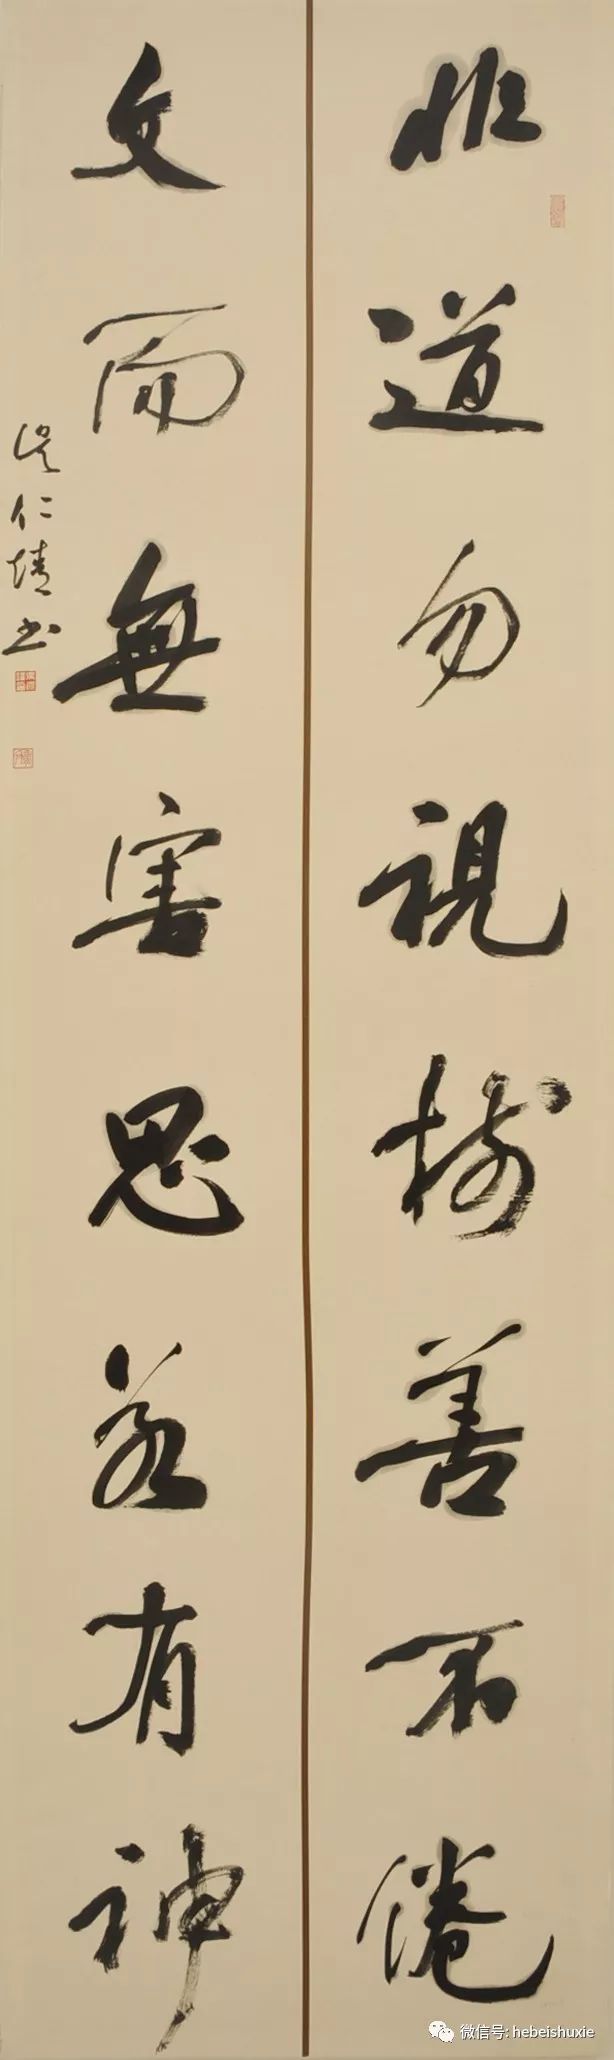 非道勿視樹善不倦
文而無害思若有神
吴仁靖书
微信号: hebeishuxie